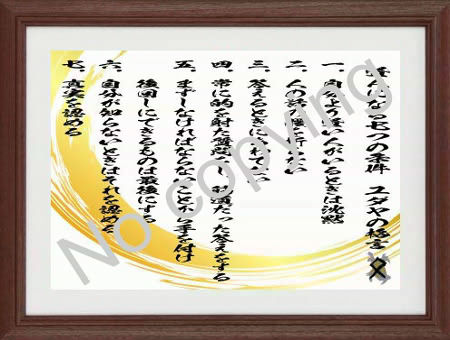 賢人になる七つの条件　ユダヤの格言
一、自分より賢い人がいるときは沈黙
二、人の話の腰を折らない
三、答えるときにあわてない
四、常に的を射た質問をし、筋道だった答えをする
五、まずしなければならないことから手を付け
後回しにできるものは最後にする
六、自分が知らないときはそれを認める
七、真実を認める
No copying